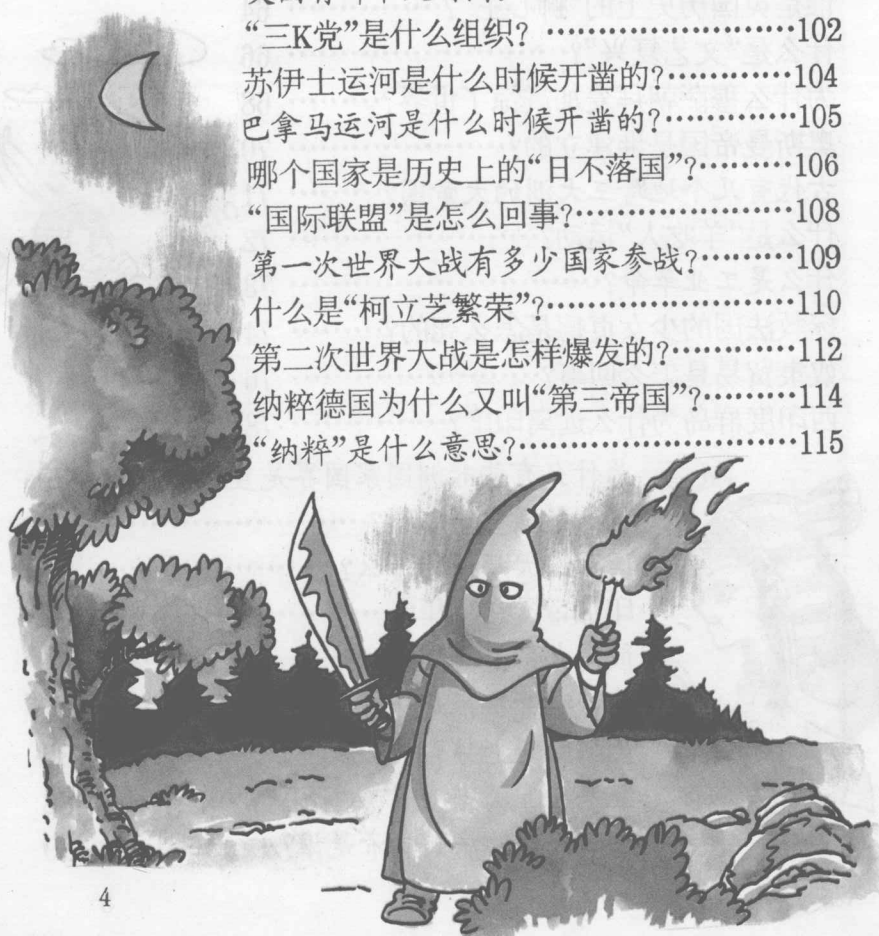 “三K党”是什么组织? …………………102
苏伊士运河是什么时候开凿的?…………104
巴拿马运河是什么时候开凿的?…………105
哪个国家是历史上的“日不落国”?………106
“国际联盟”是怎么回事?…………………108
第一次世界大战有多少国家参战?………109
什么是“柯立芝繁荣”?……………………110
第二次世界大战是怎样爆发的?…………112
纳粹德国为什么又叫“第三帝国”?………114
“纳粹”是什么意思?………………………115
4